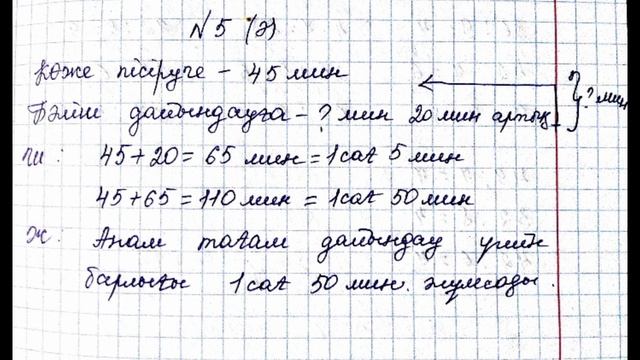 №5 (ә)
Көже пісіруге – 45 мин
Бәліш дайындауға – ? мин 20 мин артық } ? мин
Ш: 45+20=65 мин=1сағ 5 мин
45+65=110 мин = 1сағ 50 мин
Ж: Анам тағам дайындау үшін
барлығы 1сағ 50 мин. жұмсады.